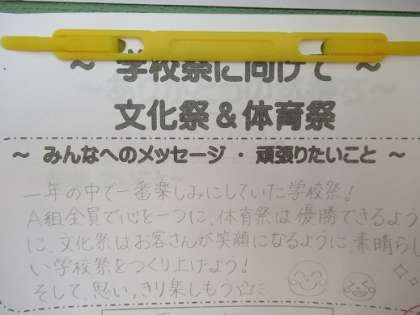 ～ 学校祭に向けて ～
文化祭＆体育祭
～ みんなへのメッセージ ・ 頑張りたいこと ～
一年の中で一番楽しみにしていた学校祭！
A組全員で心を一つに、体育祭は優勝できるよう
に、文化祭はお客さんが笑顔になるように、素晴らし
い学校祭をつくり上げよう！
そして、思いっきり楽しもう☆